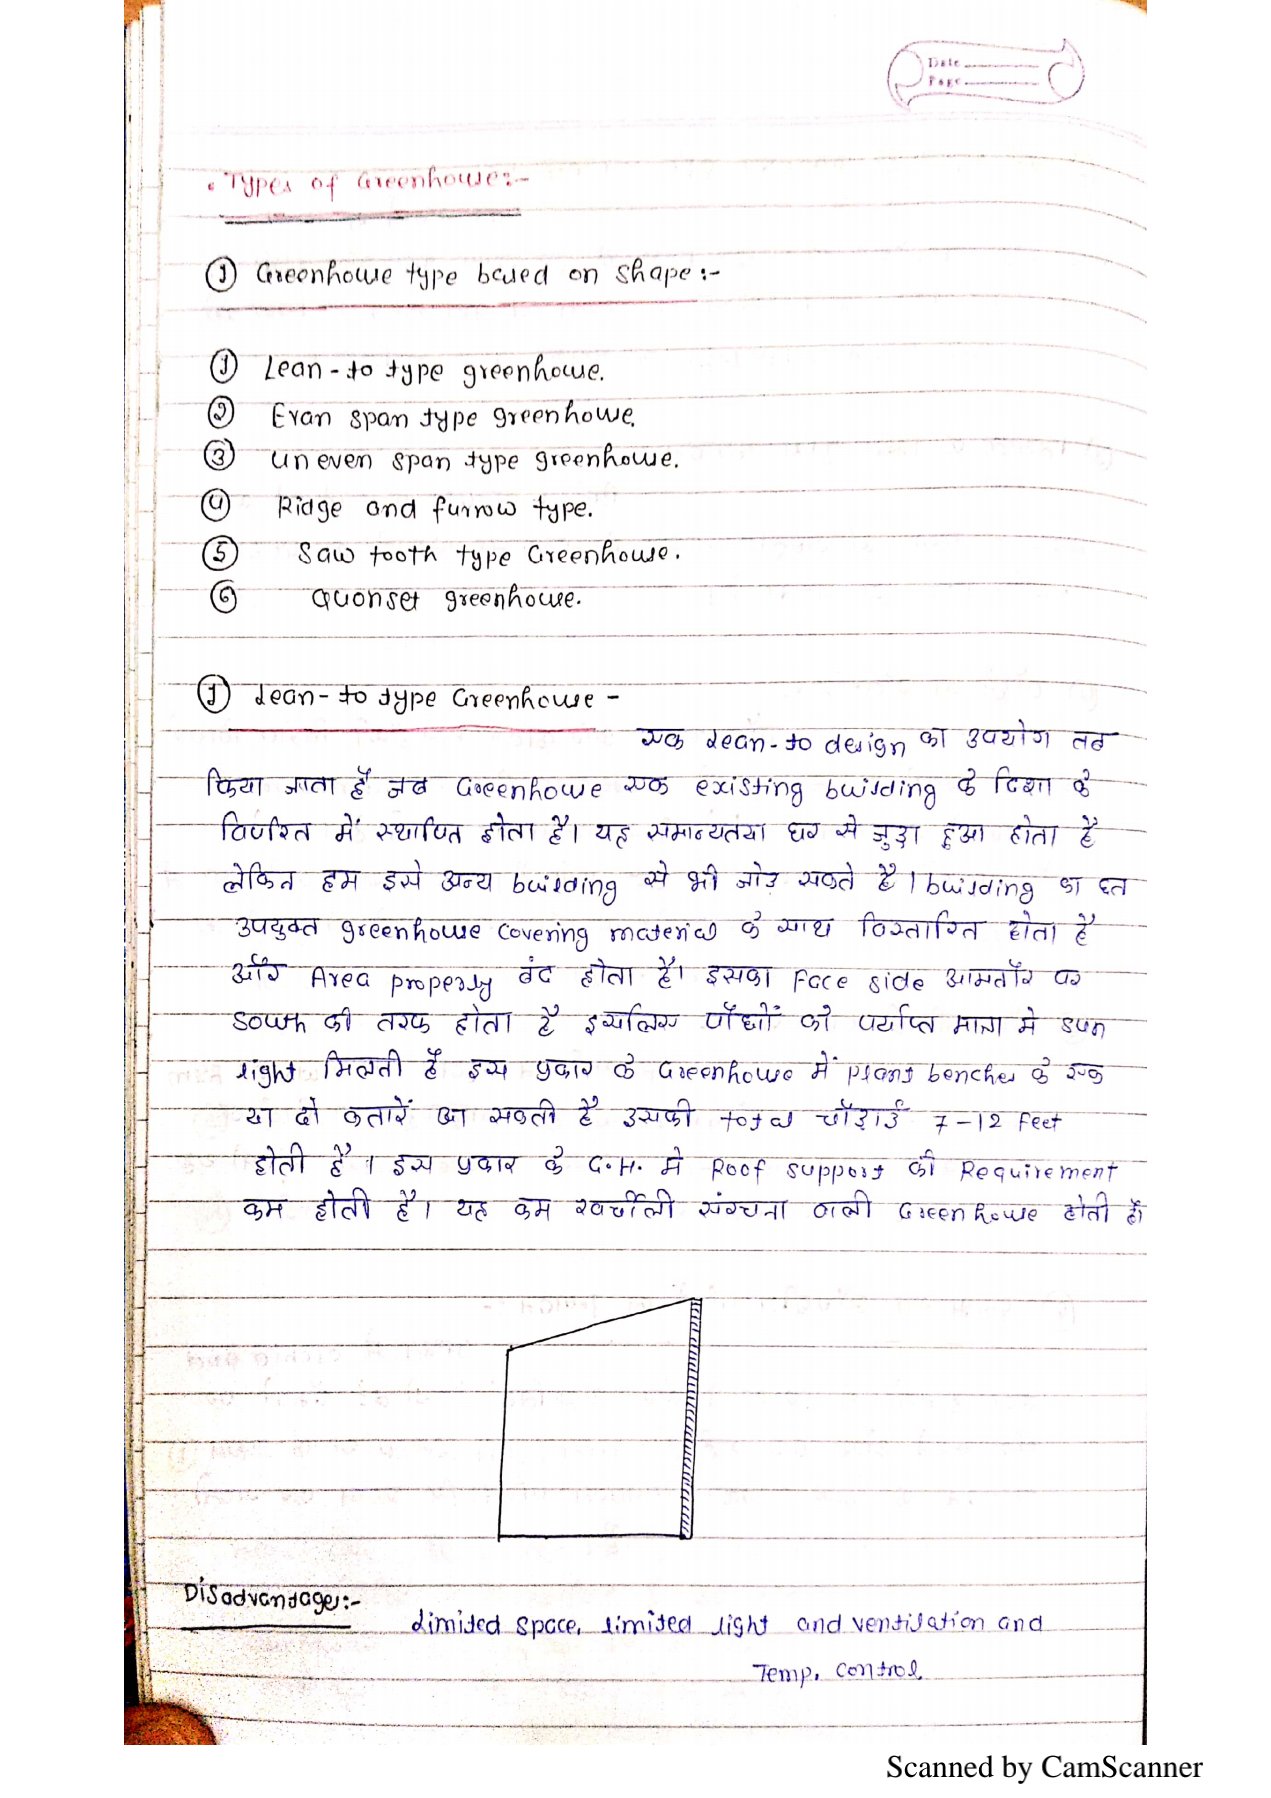 Date
Page
• Types of Greenhouse:-
① Greenhouse type based on shape:-
① Lean-to type greenhouse.
② Evan span type greenhouse.
③ uneven span type greenhouse.
④ Ridge and furrow type.
⑤ Saw tooth type Greenhouse.
⑥ Quonset greenhouse.
① Lean-to type Greenhouse -
एक Lean-to design का उपयोग तब
किया जाता है जब Greenhouse एक existing building के दिशा के
विपरित में स्थापित होता है। यह समान्यतया घर से जुड़ा हुआ होता है
लेकिन हम इसे अन्य building से भी जोड़ सकते है। building का छत
उपयुक्त greenhouse covering material के साथ विस्तारित होता है
और Area properly बंद होता है। इसका Face side आमतौर पर
South की तरफ होता है इसलिए पौधों को पर्याप्त मात्रा मे sun
light मिलती है इस प्रकार के Greenhouse में plant benches के एक
या दो कतारें आ सकती है उसकी total चौड़ाई 7-12 Feet
होती है। इस प्रकार के G.H. मे Roof support की Requirement
कम होती है। यह कम खर्चीली संरचना वाली Greenhouse होती है।
Disadvantage:-
Limited space, limited light and ventilation and
Temp. control
Scanned by CamScanner